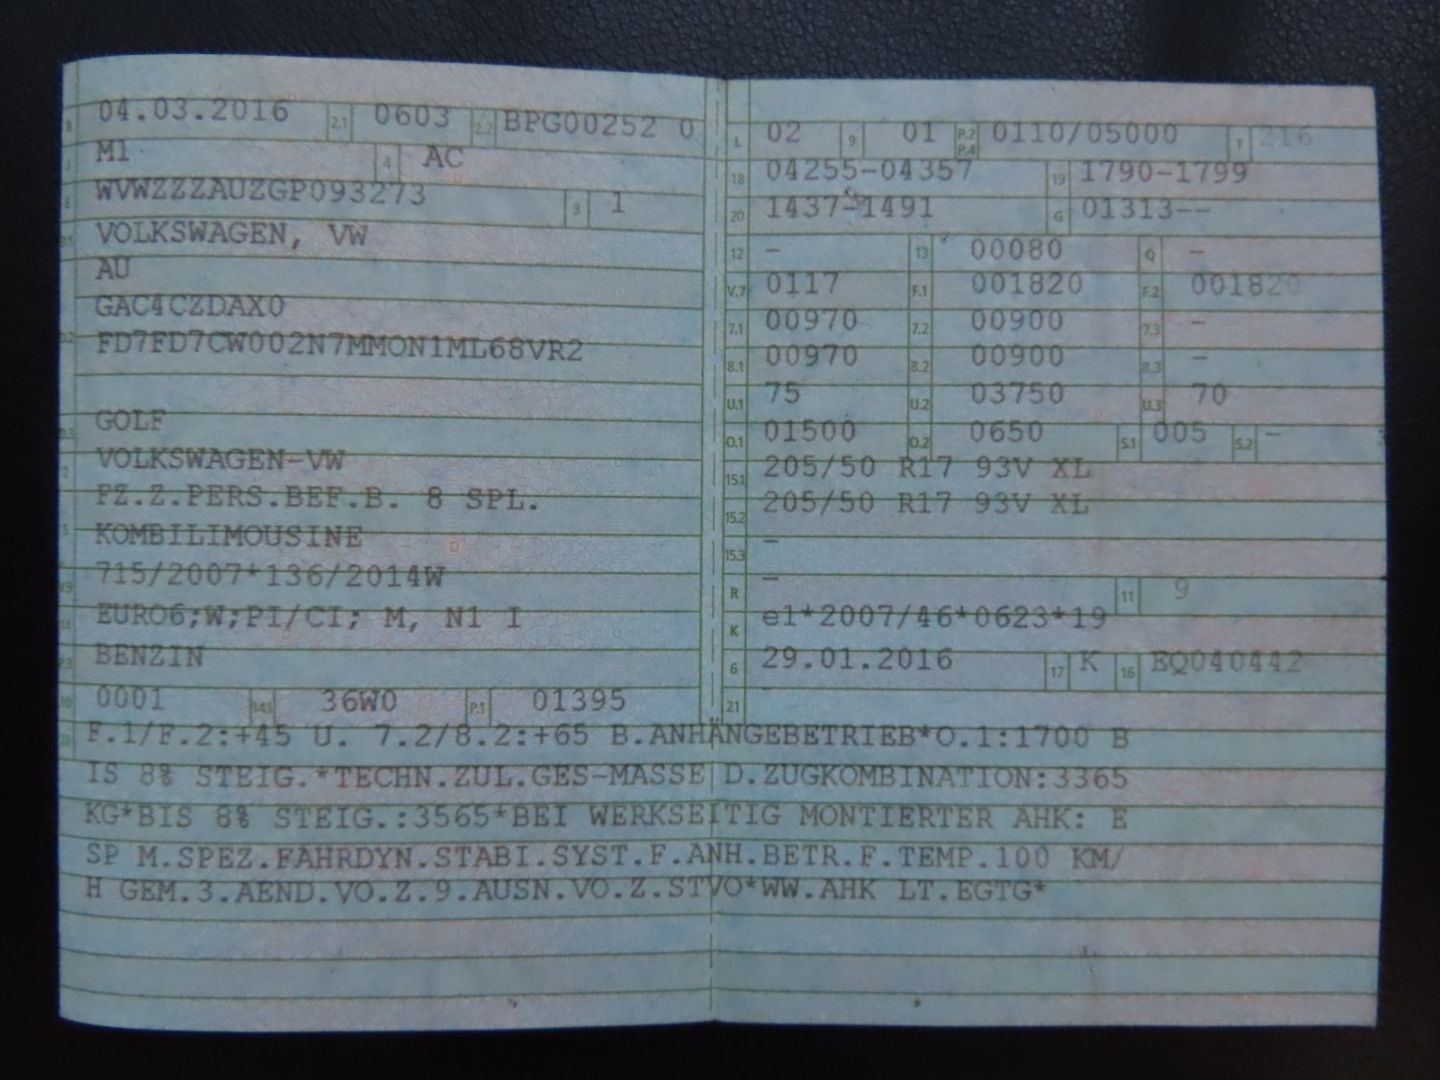 B 04.03.2016 2.1 0603 2.2 BPG00252 0
J M1 4 AC
E WVWZZZAUZGP093273 3 1
D.1 VOLKSWAGEN, VW
AU
GAC4CZDAX0
D.2 FD7FD7CW002N7MMON1ML68VR2
D.3 GOLF
2 VOLKSWAGEN-VW
FZ.Z.PERS.BEF.B. 8 SPL.
5 KOMBILIMOUSINE
V.9 715/2007*136/2014W
14 EURO6;W;PI/CI; M, N1 I
P.3 BENZIN
10 0001 14.1 36W0 P.1 01395
L 02 9 01 P.2 P.4 0110/05000 T 216
18 04255-04357 19 1790-1799
20 1437-1491 G 01313--
12 - 13 00080 Q -
V.7 0117 F.1 001820 F.2 001820
7.1 00970 7.2 00900 7.3 -
8.1 00970 8.2 00900 8.3 -
U.1 75 U.2 03750 U.3 70
O.1 01500 O.2 0650 S.1 005 S.2 -
15.1 205/50 R17 93V XL
15.2 205/50 R17 93V XL
15.3 -
R - 11 9
K e1*2007/46*0623*19
6 29.01.2016 17 K 16 EQ040442
21
22 F.1/F.2:+45 U. 7.2/8.2:+65 B.ANHÄNGEBETRIEB*O.1:1700 B
IS 8% STEIG.*TECHN.ZUL.GES-MASSE D.ZUGKOMBINATION:3365
KG*BIS 8% STEIG.:3565*BEI WERKSEITIG MONTIERTER AHK: E
SP M.SPEZ.FAHRDYN.STABI.SYST.F.ANH.BETR.F.TEMP.100 KM/
H GEM.3.AEND.VO.Z.9.AUSN.VO.Z.STVO*WW.AHK LT.EGTG*